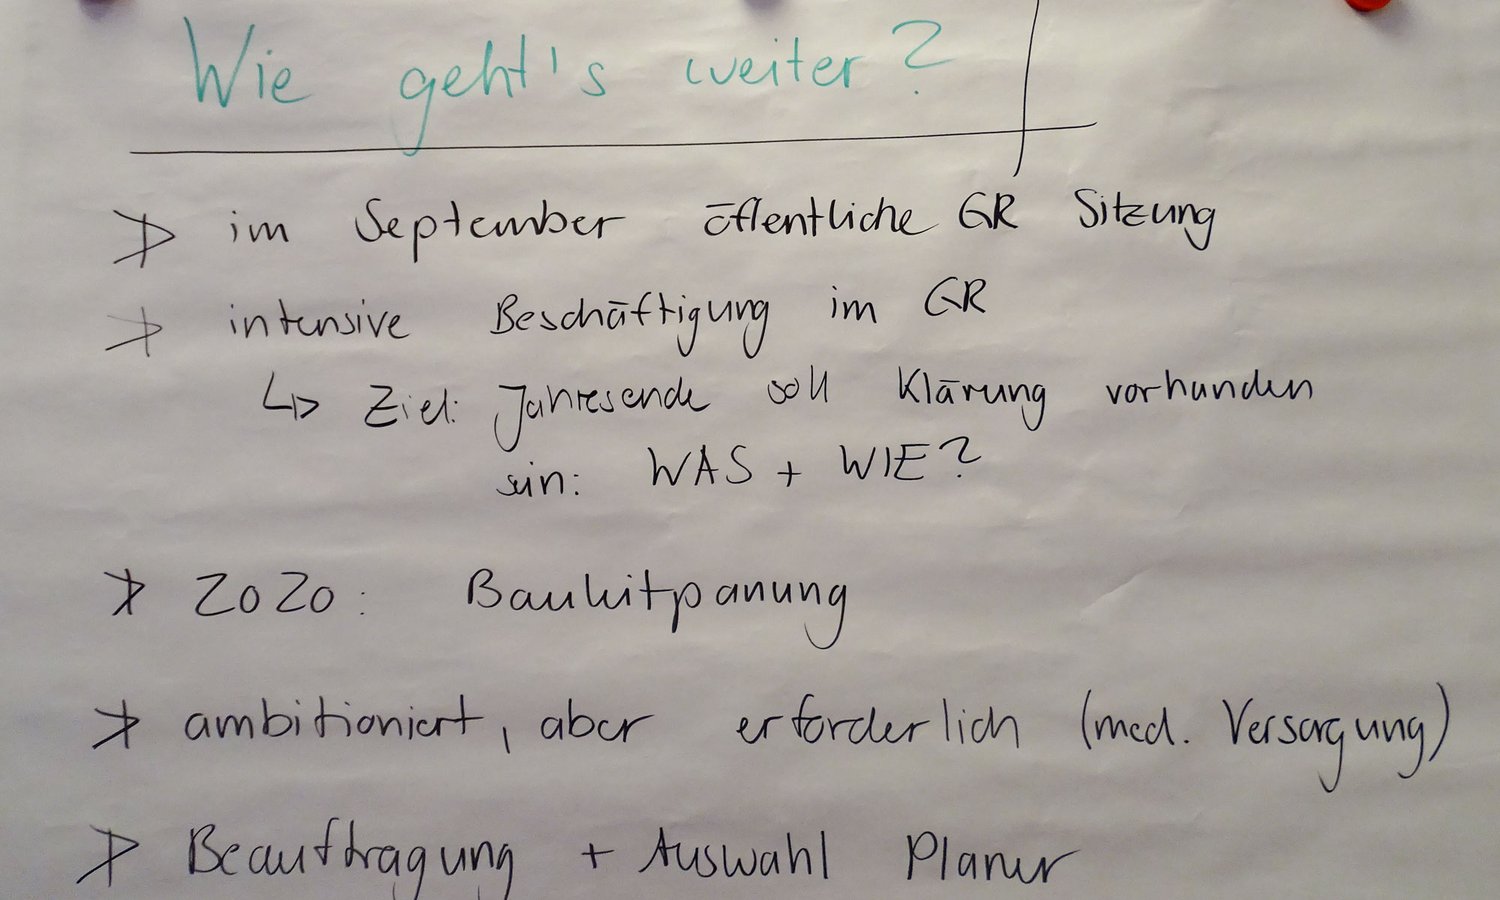 Wie geht's weiter?
im September öffentliche GR Sitzung
intensive Beschäftigung im GR
↳ Ziel: Jahresende soll Klärung vorhanden
sein: WAS + WIE?
2020: Bauleitpanung
ambitioniert, aber erforderlich (med. Versorgung)
Beauftragung + Auswahl Planer